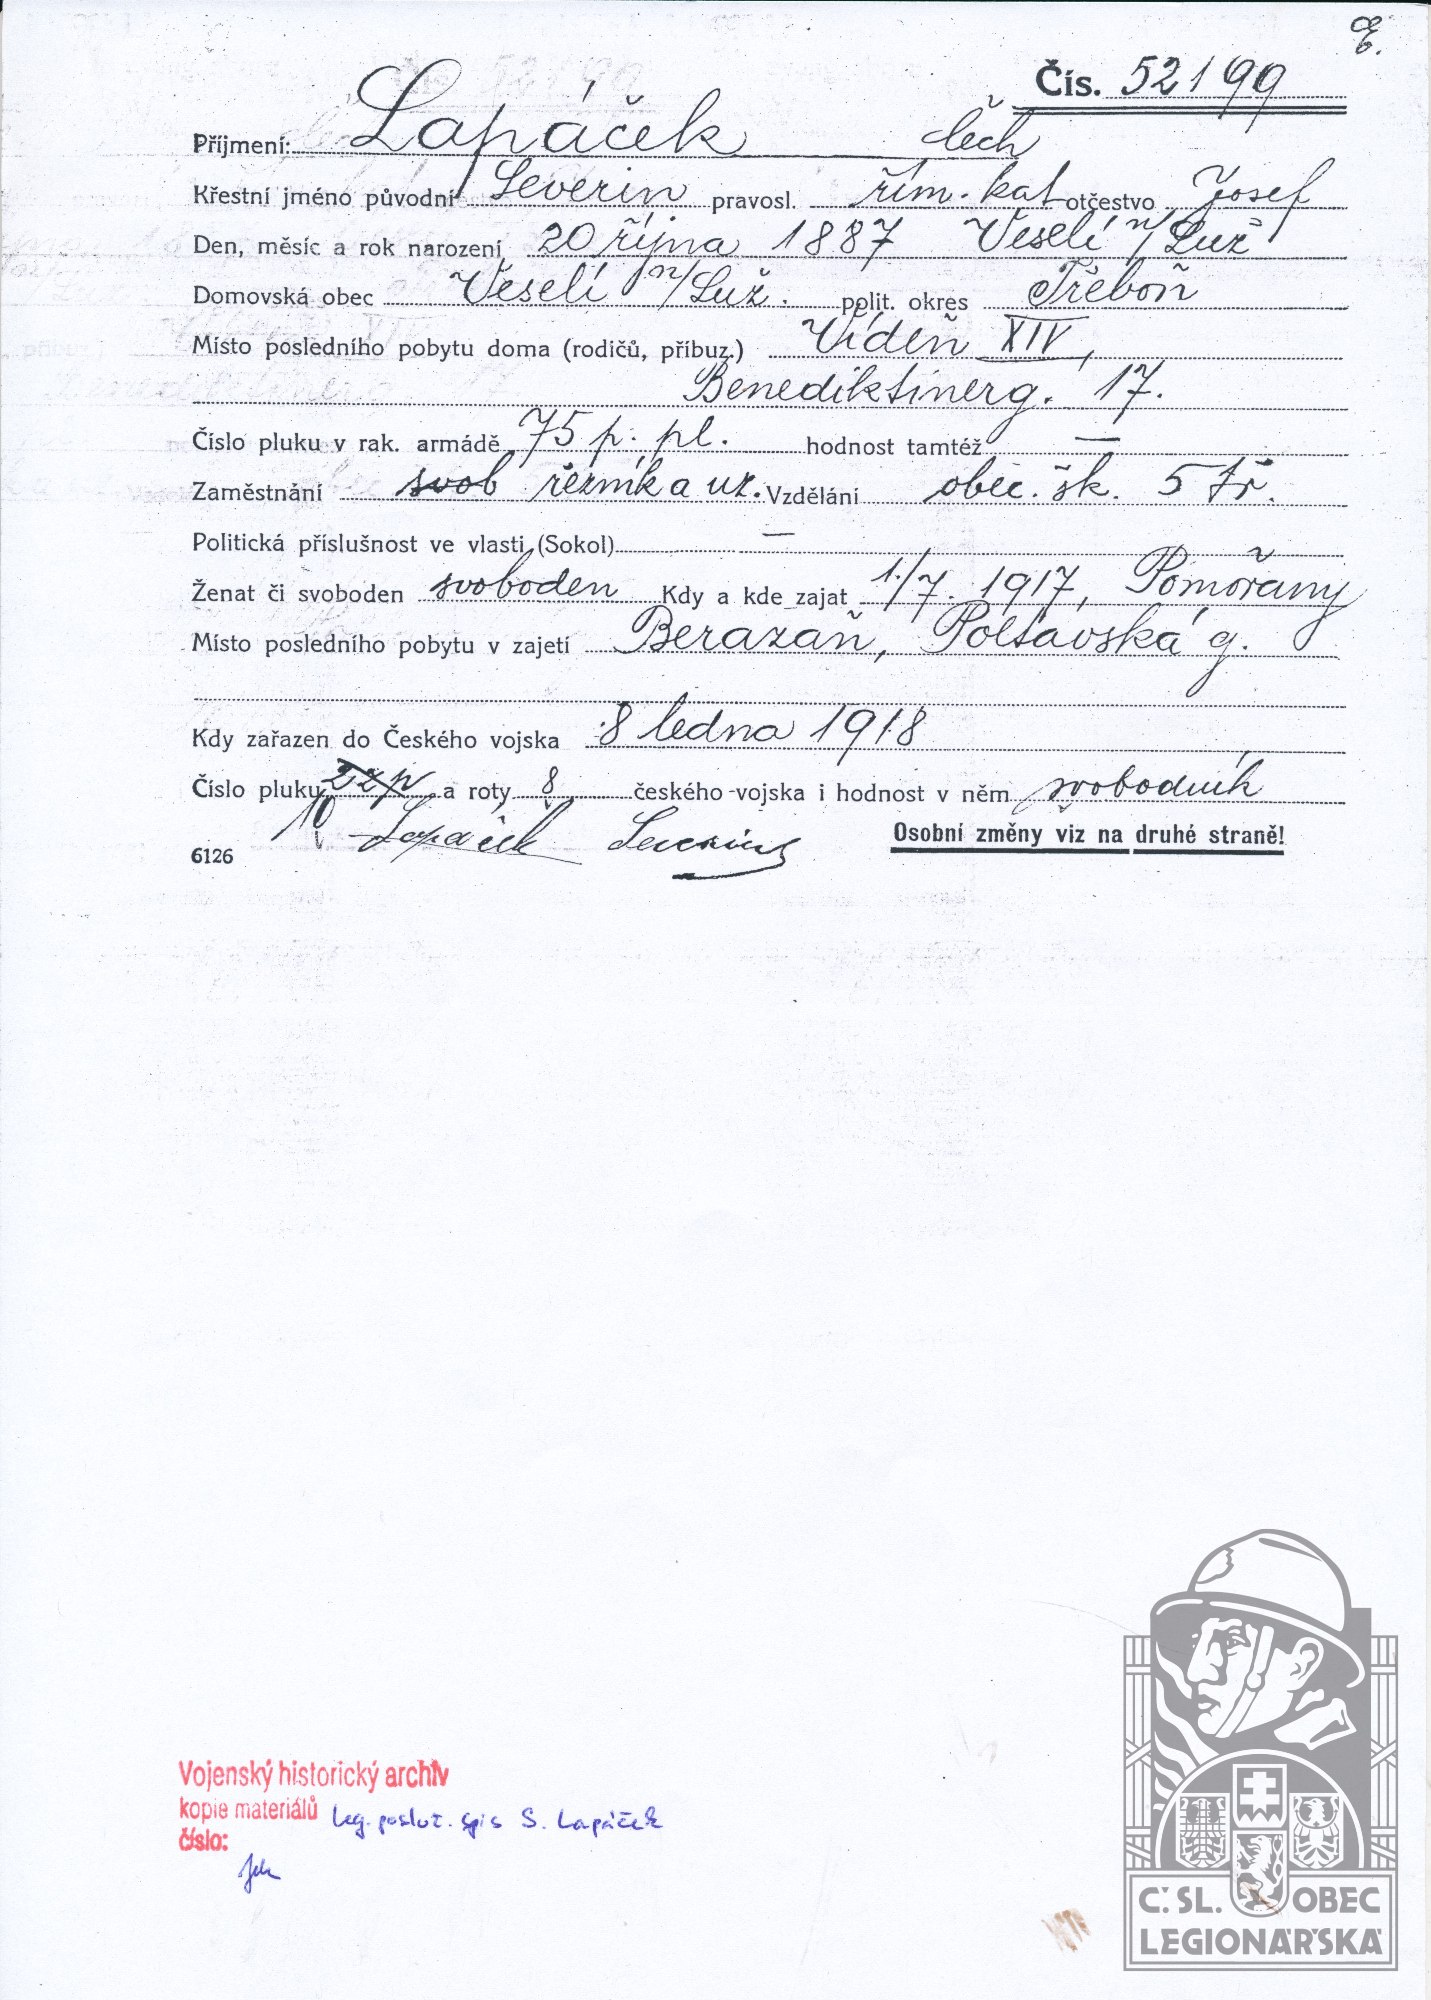 Čís. 52199
Příjmení: Lapáček čech
Křestní jméno původní Severin pravosl. řím. kat otčestvo Josef
Den, měsíc a rok narození 20 října 1887 Veselí n/Luž
Domovská obec Veselí n/Luž. polit. okres Třeboň
Místo posledního pobytu doma (rodičů, příbuz.) Vídeň XIV,
Benediktinerg. 17.
Číslo pluku v rak. armádě 75 p. pl. hodnost tamtéž —
Zaměstnání svob řezník a uz. Vzdělání obec. šk. 5 tř.
Politická příslušnost ve vlasti (Sokol) —
Ženat či svoboden svoboden Kdy a kde zajat 1./7. 1917, Pomořany
Místo posledního pobytu v zajetí Berazaň, Poltavská g.
Kdy zařazen do Českého vojska 8 ledna 1918
Číslo pluku a roty 8 českého vojska i hodnost v něm svobodník
10 Lapáček Severin
Osobní změny viz na druhé straně!
6126
Vojenský historický archiv
kopie materiálů Leg. posluž. spis S. Lapáček
číslo:
Č.SL. OBEC
LEGIONÁŘSKÁ